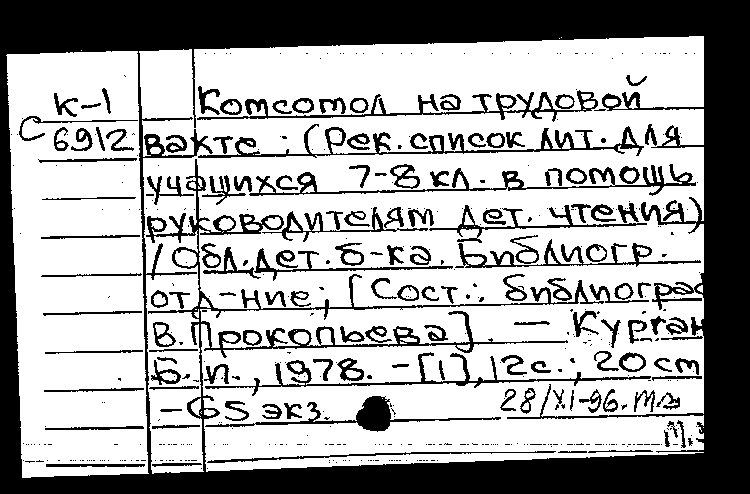 К-1 Комсомол на трудовой
С 6912 вахте : (Рек. список лит. для
учащихся 7-8 кл. в помощь
руководителям дет. чтения)
/ Обл. дет. б-ка. Библиогр.
отд-ние ; [Сост.: библиограф
В. Прокопьева]. — Курган
Б. и., 1978. - [1], 12 с. ; 20 см
- 65 экз.
28/XI-96.